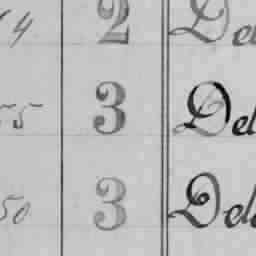 4 2 De
55 3 Del
50 3 Dela